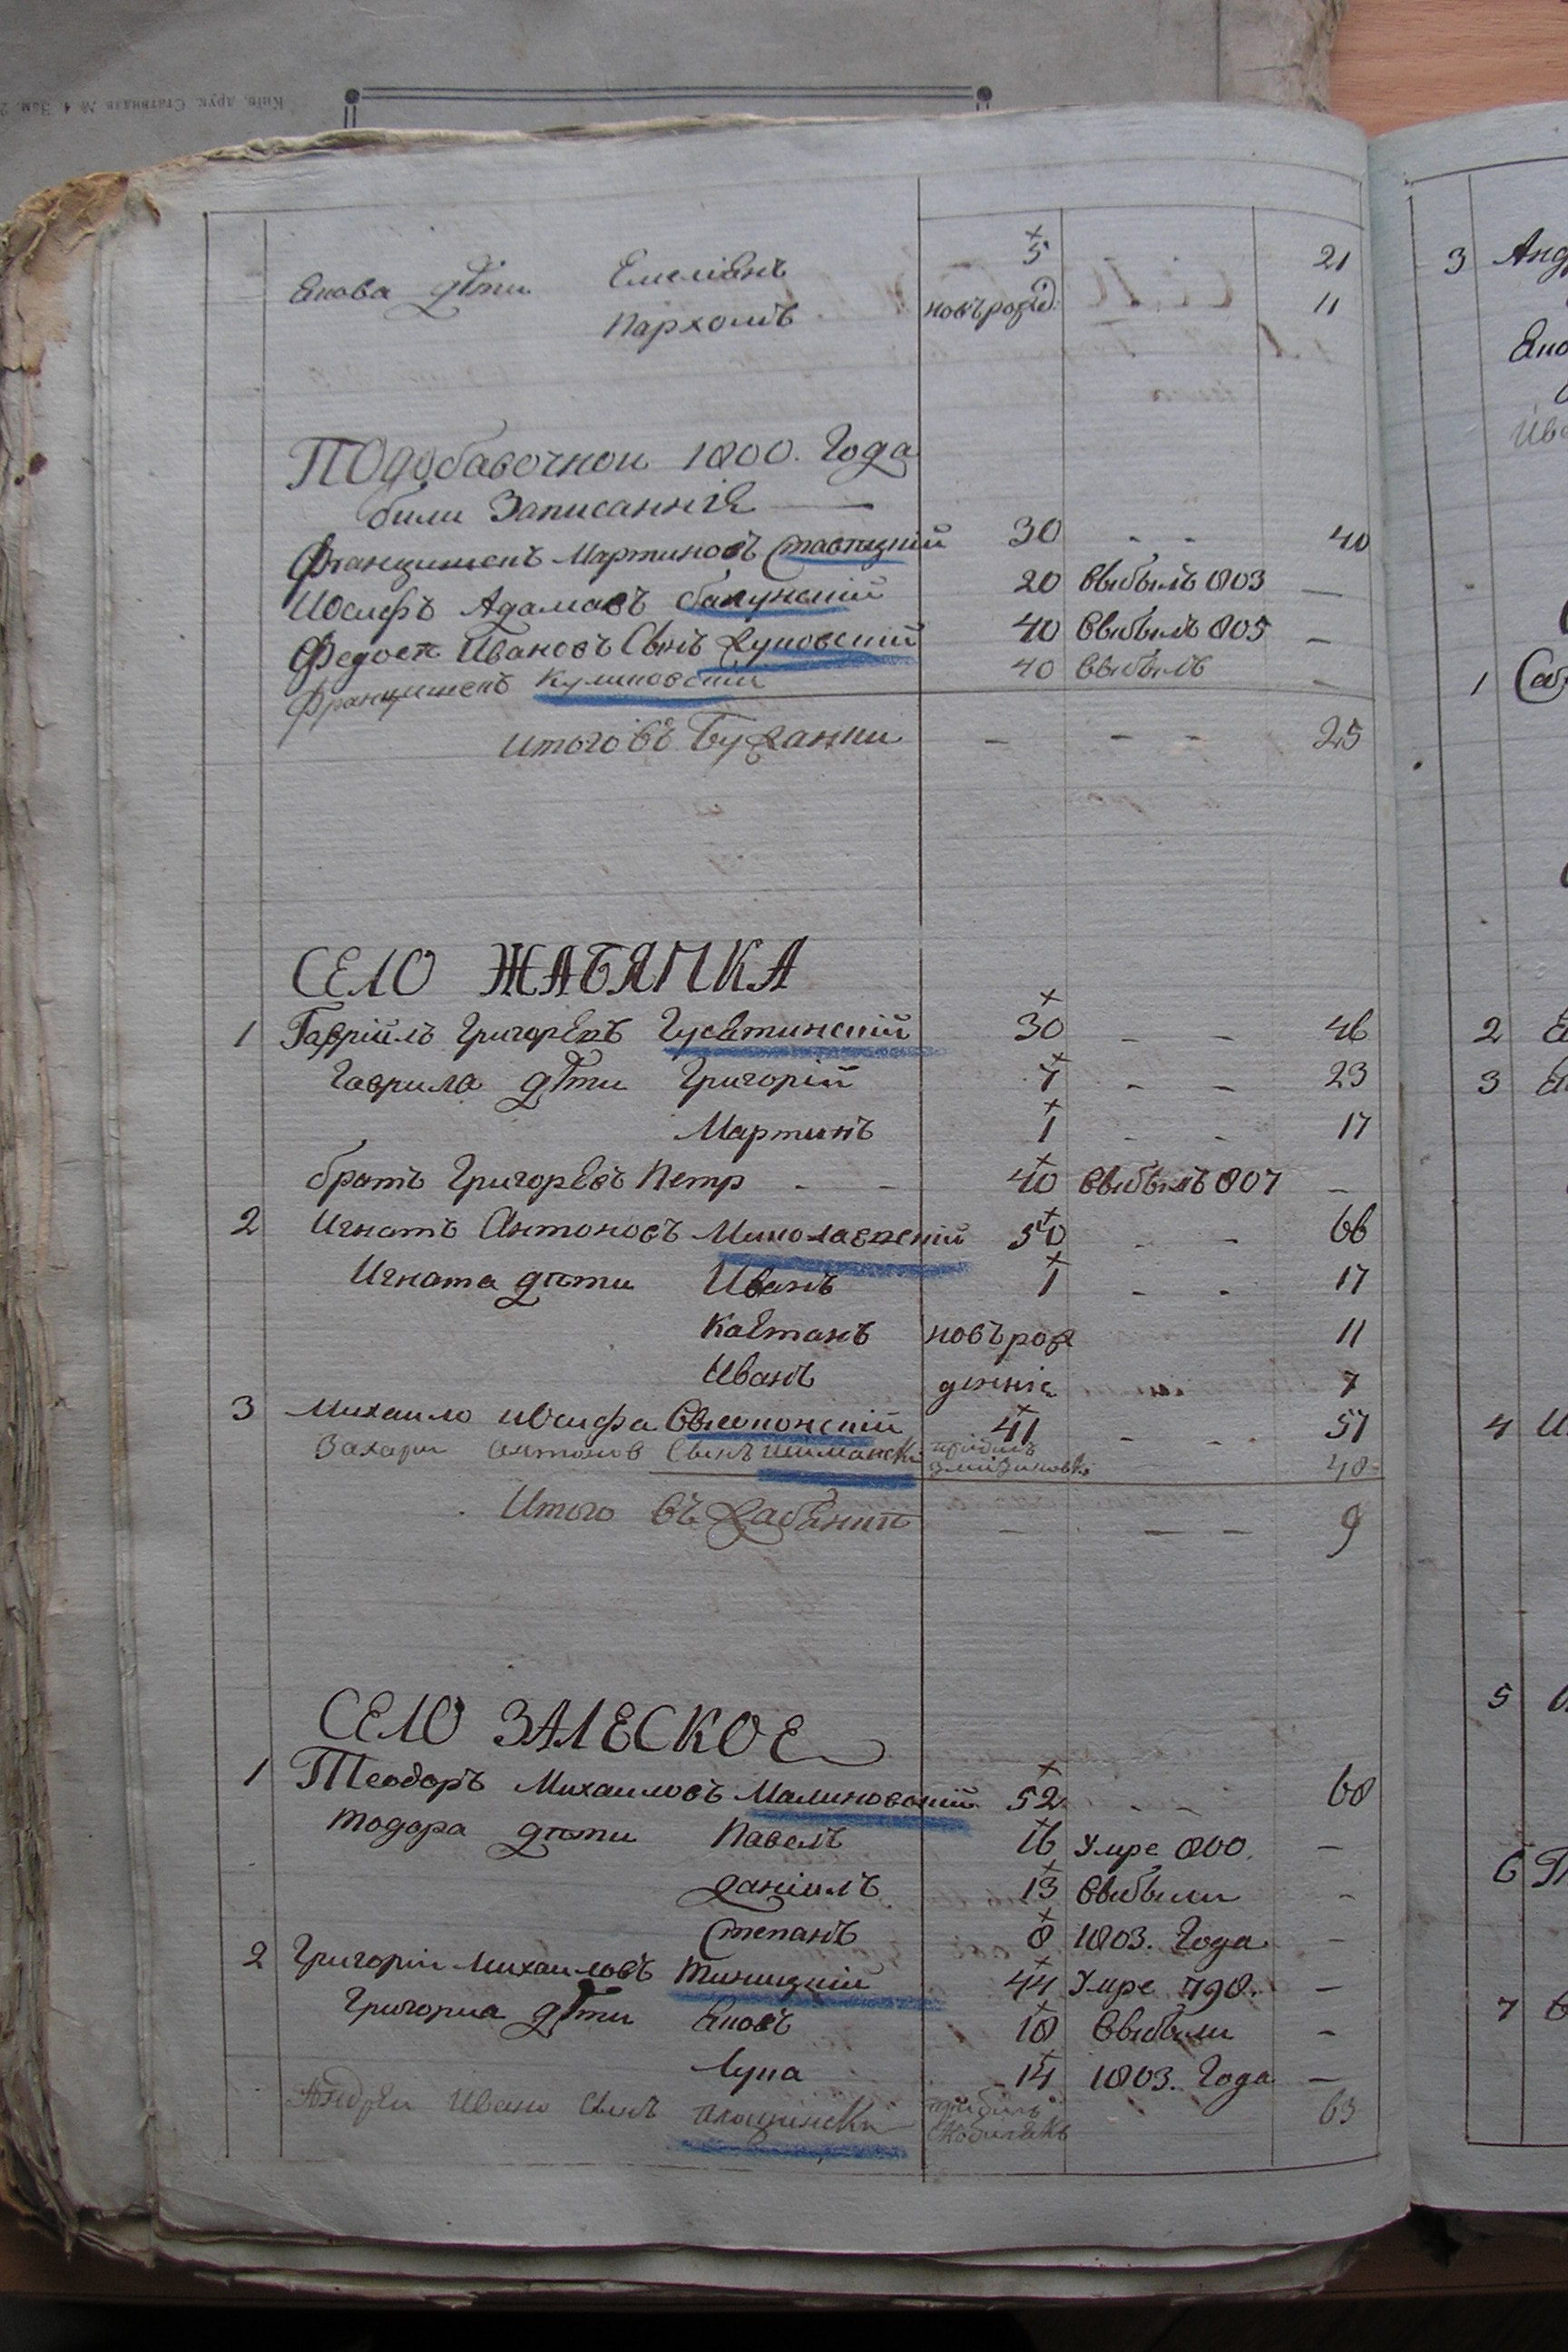 Київ, друк.
Якова дѣти Емеліянъ 5 21
Пархомъ новърожд. 11
ПОдобавочной 1800. Года
били Записаннія —
Францишекъ Мартиновъ Ставицкій 30 - - 40
Иосифъ Адамовъ 20 Выбылъ 803 —
Федоръ Ивановъ Сынъ Жуковскій 40 Выбылъ 805 —
Францишекъ Куликовскій 40 Выбылъ —
Итого въ Бужанки — - - 25
СЕЛО ЖАБЯНКА
1 Гавріилъ Григорѣвъ Гусятинскій 30 - - 46
Гаврила дѣти Григорій 7 - - 23
Мартинъ 1 - - 17
братъ Григорѣвъ Петр - - 40 Выбылъ 807 —
2 Игнатъ Антоновъ Миколаевскій 50 - - 66
Игната дѣти Иванъ 1 - - 17
Каѣтанъ новърож 11
Иванъ деннiе 7
3 Михаило Иосифа 41 - - 57
Захари Антонов Сынъ Шиманскі 40
Итого въ Жабянкѣ — — — 9
СЕЛО ЗАЛЕСКОЕ
1 Теодоръ Михаиловъ Малиновскій 52 - - 68
Тодора дѣти Павелъ 16 Умре 800. —
Даніилъ 13 Выбыли -
Степанъ 8 1803. Года -
2 Григорій Михаиловъ 44 Умре 798. —
Григориа дѣти Яковъ 18 Выбыли -
Лука 14 1803. Года —
Андрѣи Ивано Сынъ прибилъ 63
3
1
2
3
4
5
6
7